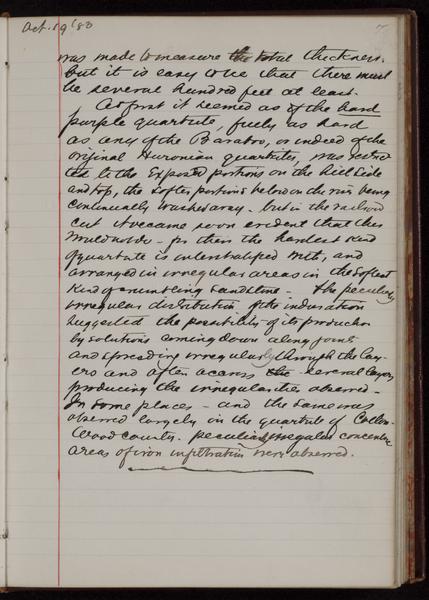 Oct. 19 '83
7
was made to measure the total thickness.
but it is easy to see that there must
be several hundred feet at least.
At first it seemed as if the hard
purple quartzite, fully as hard
as any of the Baraboo, or indeed of the
original Huronian quartzites, was restric
ted to the exposed portions on the hill side
and top, the softer portions below on the ravine being
continually washed away. but in the railroad
cut it became soon evident that this
would not do - for there the hardest kind
of quartzite is interstratified with, and
arranged in irregular areas in the softest
kind of crumbling sandstone - the peculiarly
irregular distribution of the induration
suggested the possibility of its production
by solutions coming down along joints
and spreading irregularly through the lay-
ers and often across the several layers
producing the irregularities observed.
In some places - and the same was
observed largely in the quartzite of Cotton-
wood county. peculiar irregular concentric
areas of iron infiltration were observed.